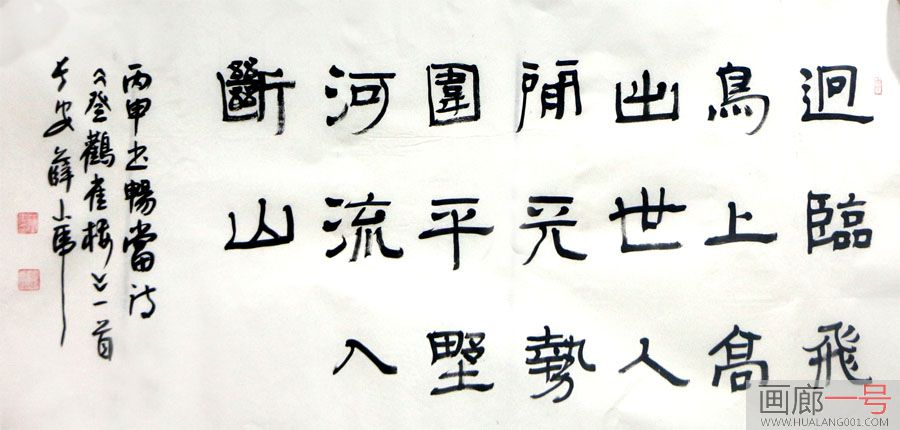 迥臨飛
鳥上高
出世人
間天勢
圍平野
河流入
斷山
丙申書暢當詩
《登鸛雀樓》一首
長安薛小
画廊一号
WWW.HUALANG001.COM